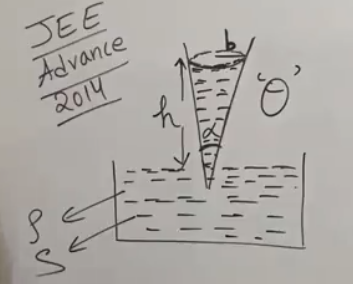 JEE
Advance
2014
b
'θ'
h
α
ρ
S